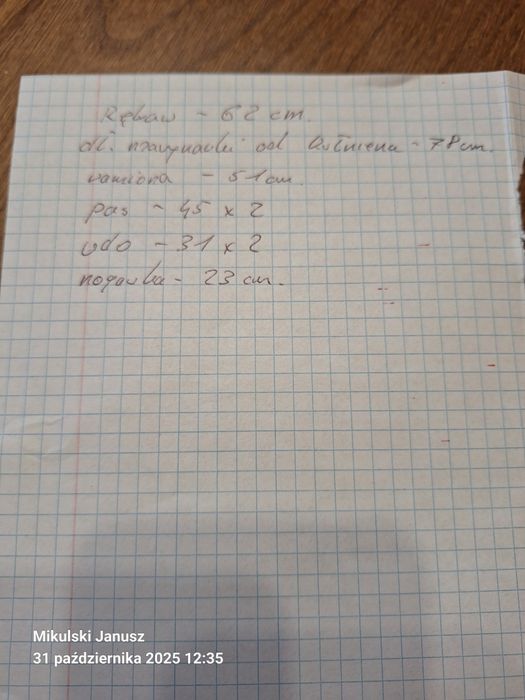 Rękaw - 62 cm.
dł. marynarki od kołnierza - 78 cm.
ramiona - 51 cm.
pas - 45 x 2
udo - 31 x 2
nogawka - 23 cm.
Mikulski Janusz
31 października 2025 12:35